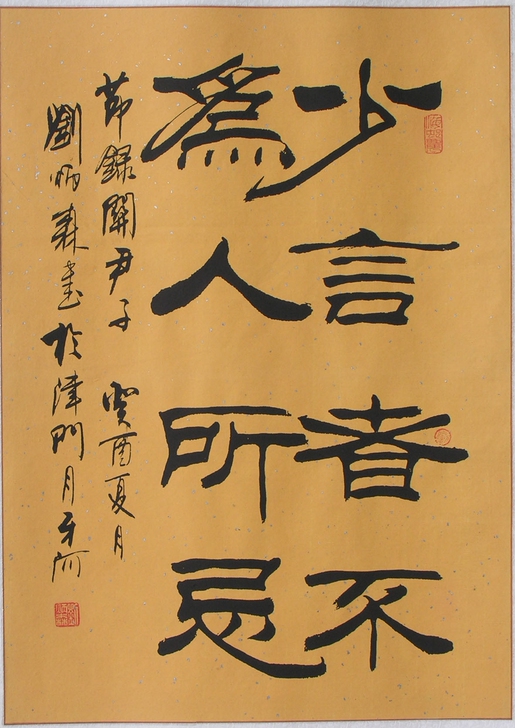 少言者不
為人所忌
節錄關尹子 癸酉夏月
劉炳森書於津門月牙河